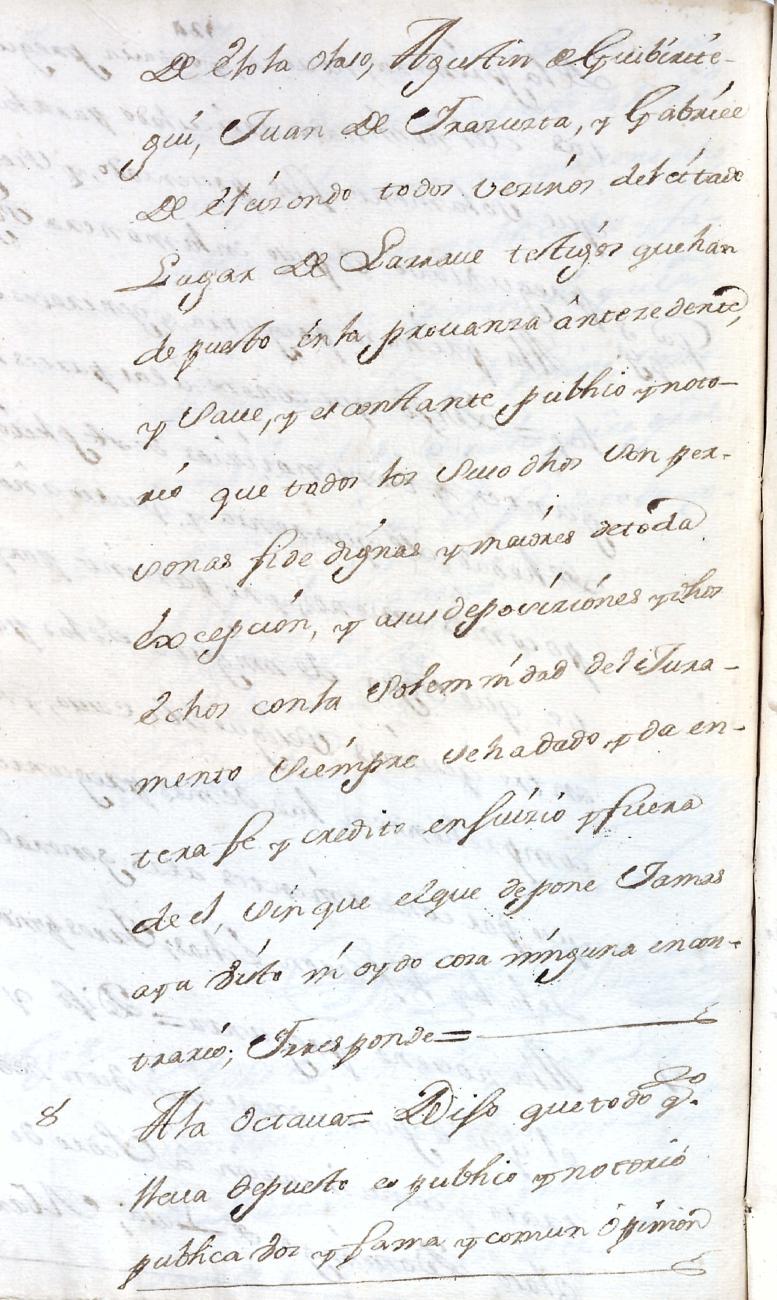 De Elola olaso, Agustin de Guibirite-
gui, Juan De Irazuzta, y Gabriel
De Elizondo todos vezinos del citado
Lugar De Larraue testigos que han
depuesto en la provanza antezedente,
y Saue, y es constante, publico y noto-
rio que todos los Suso dhos Son per-
sonas fide dignas y maiores de toda
Excepcion, y a sus deposiziones y dhos
Echos con la Solemnidad del Jura-
mento Siempre se ha dado, y da en-
tera fe y credito en Juizio y fuera
de el, Sin que el que depone Jamas
aya visto ni oydo cosa ninguna en con-
trario, I responde=
8 A la Octaua= Dijo que todo qo.
lleua depuesto es publico y notorio
publica voz y fama y comun opinion